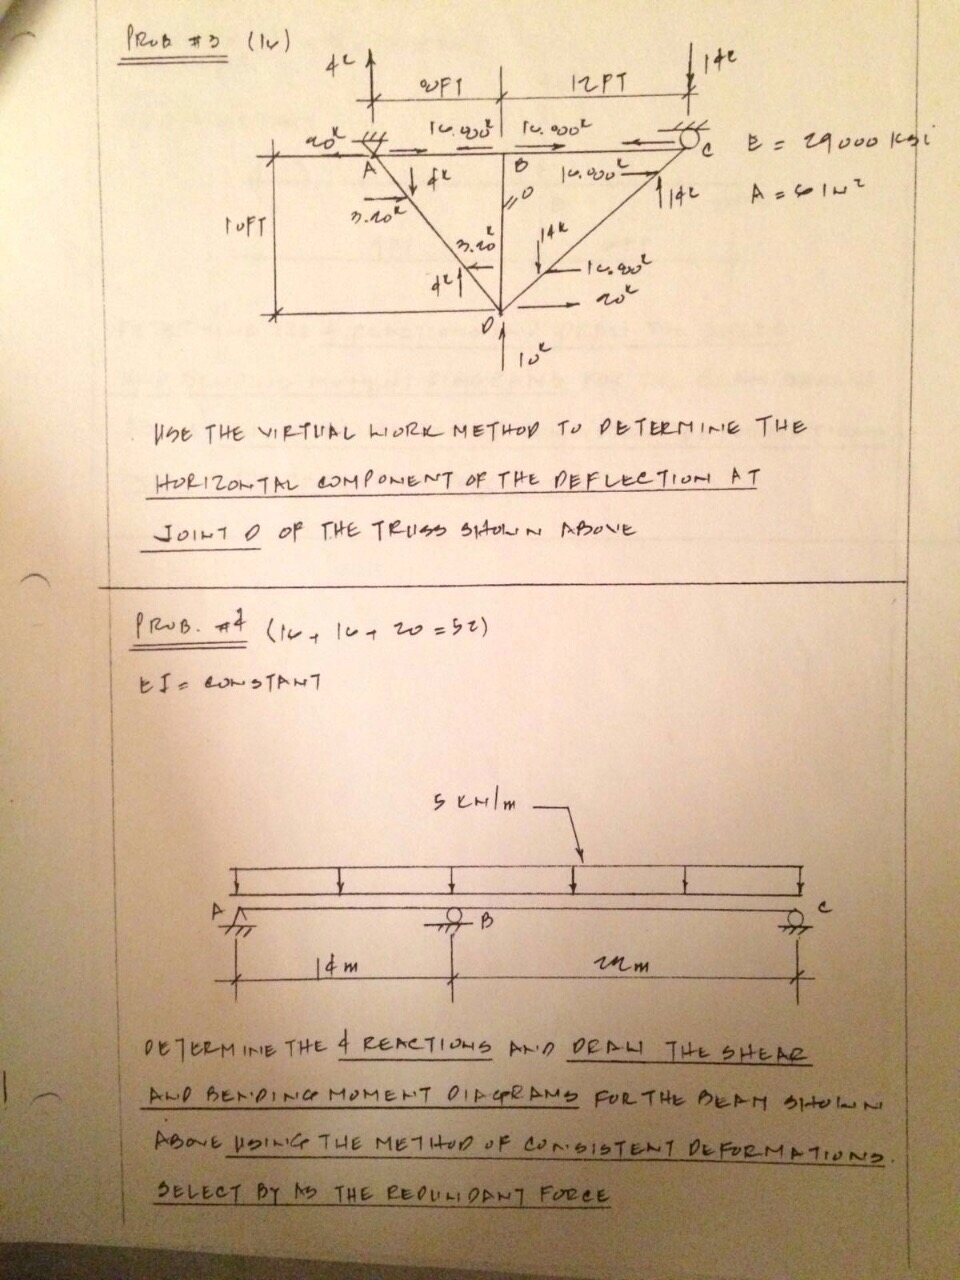 PROB #3 (16)
4k
14k
8FT
12FT
20k
16.800k
16.800k
A
B
C
E = 29000 ksi
4k
0
16.800k
14k
A = 8 IN²
3.20k
10FT
3.20k
14k
4k
16.800k
20k
D
10k
USE THE VIRTUAL WORK METHOD TO DETERMINE THE
HORIZONTAL COMPONENT OF THE DEFLECTION AT
JOINT D OF THE TRUSS SHOWN ABOVE
PROB. #4 (16 + 16 + 20 = 52)
EI = CONSTANT
5 KN/m
A
B
C
14 m
22 m
DETERMINE THE 4 REACTIONS AND DRAW THE SHEAR
AND BENDING MOMENT DIAGRAMS FOR THE BEAM SHOWN
ABOVE USING THE METHOD OF CONSISTENT DEFORMATIONS.
SELECT BY AS THE REDUNDANT FORCE